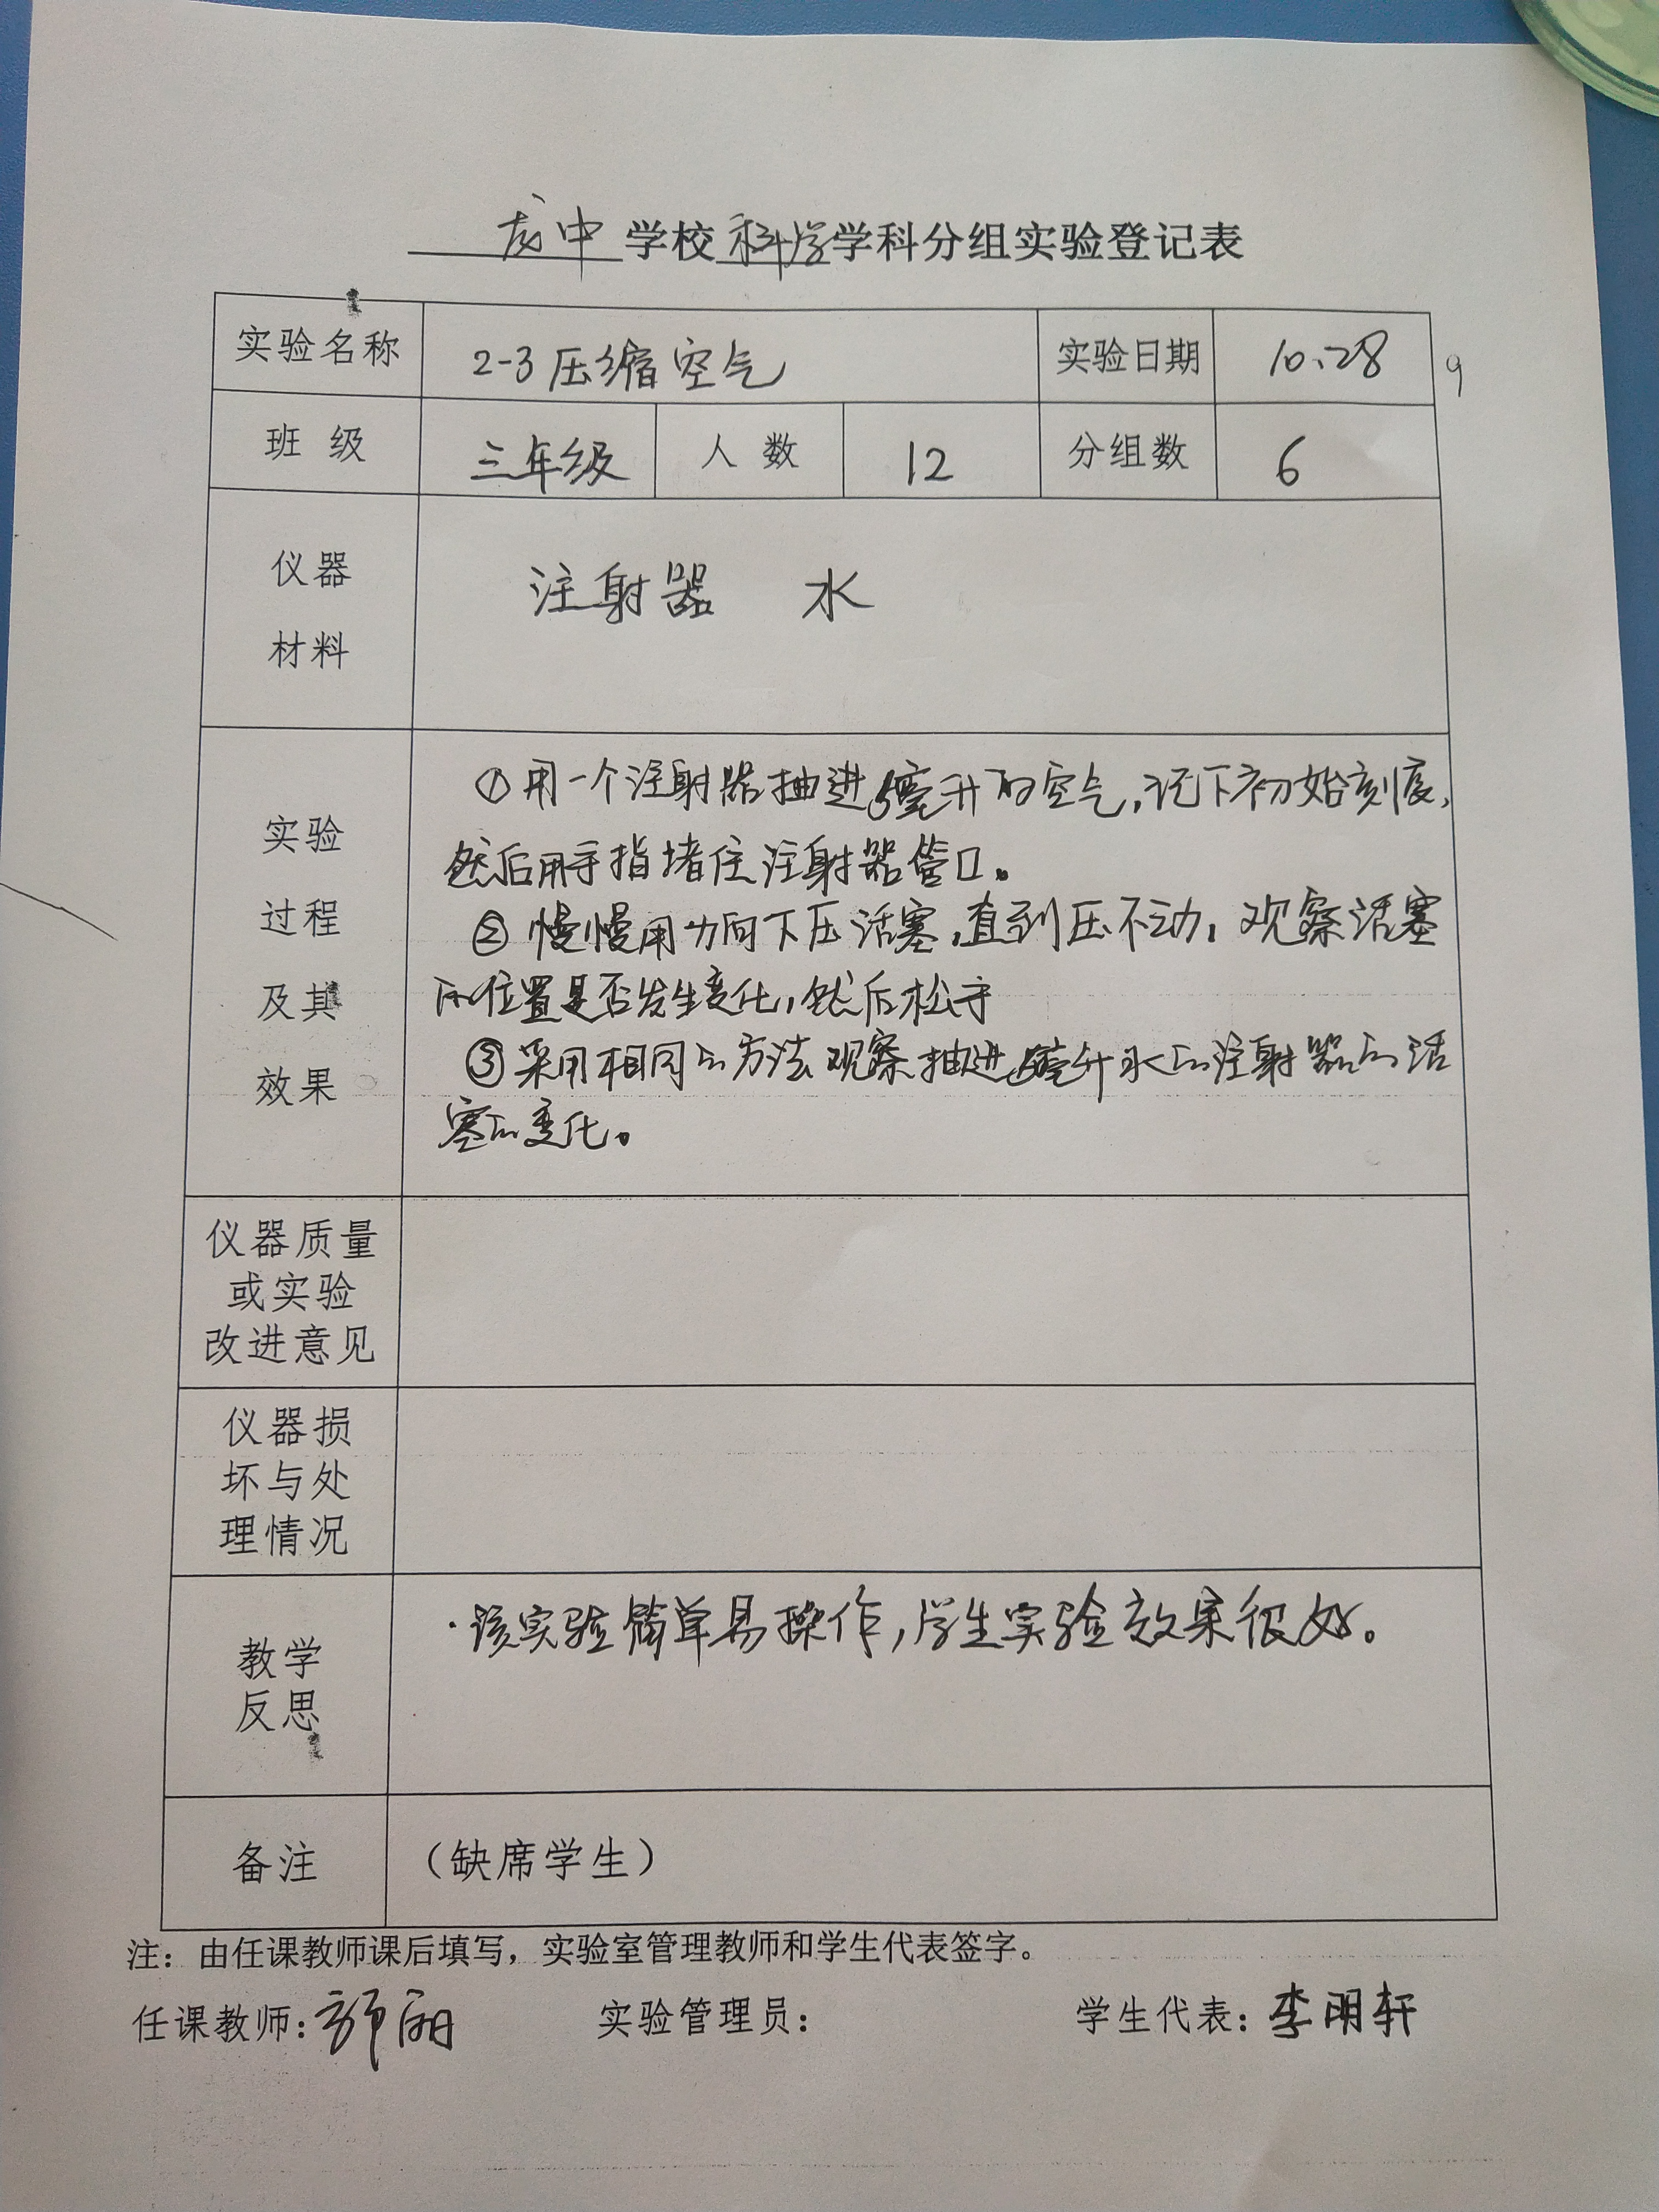 龙中学校科学学科分组实验登记表
实验名称 2-3压缩空气 实验日期 10.28
9
班 级 三年级 人 数 12 分组数 6
仪器
材料
注射器 水
实验
过程
及其
效果
①用一个注射器抽进5毫升的空气,记下初始刻度,
然后用手指堵住注射器管口。
②慢慢用力向下压活塞,直到压不动,观察活塞
的位置是否发生变化,然后松手
③采用相同的方法观察抽进5毫升水的注射器的活
塞的变化。
仪器质量
或实验
改进意见
仪器损
坏与处
理情况
教学
反思
·该实验简单易操作,学生实验效果很好。
备注 (缺席学生)
注：由任课教师课后填写，实验室管理教师和学生代表签字。
任课教师： 丽 实验管理员： 学生代表：李明轩